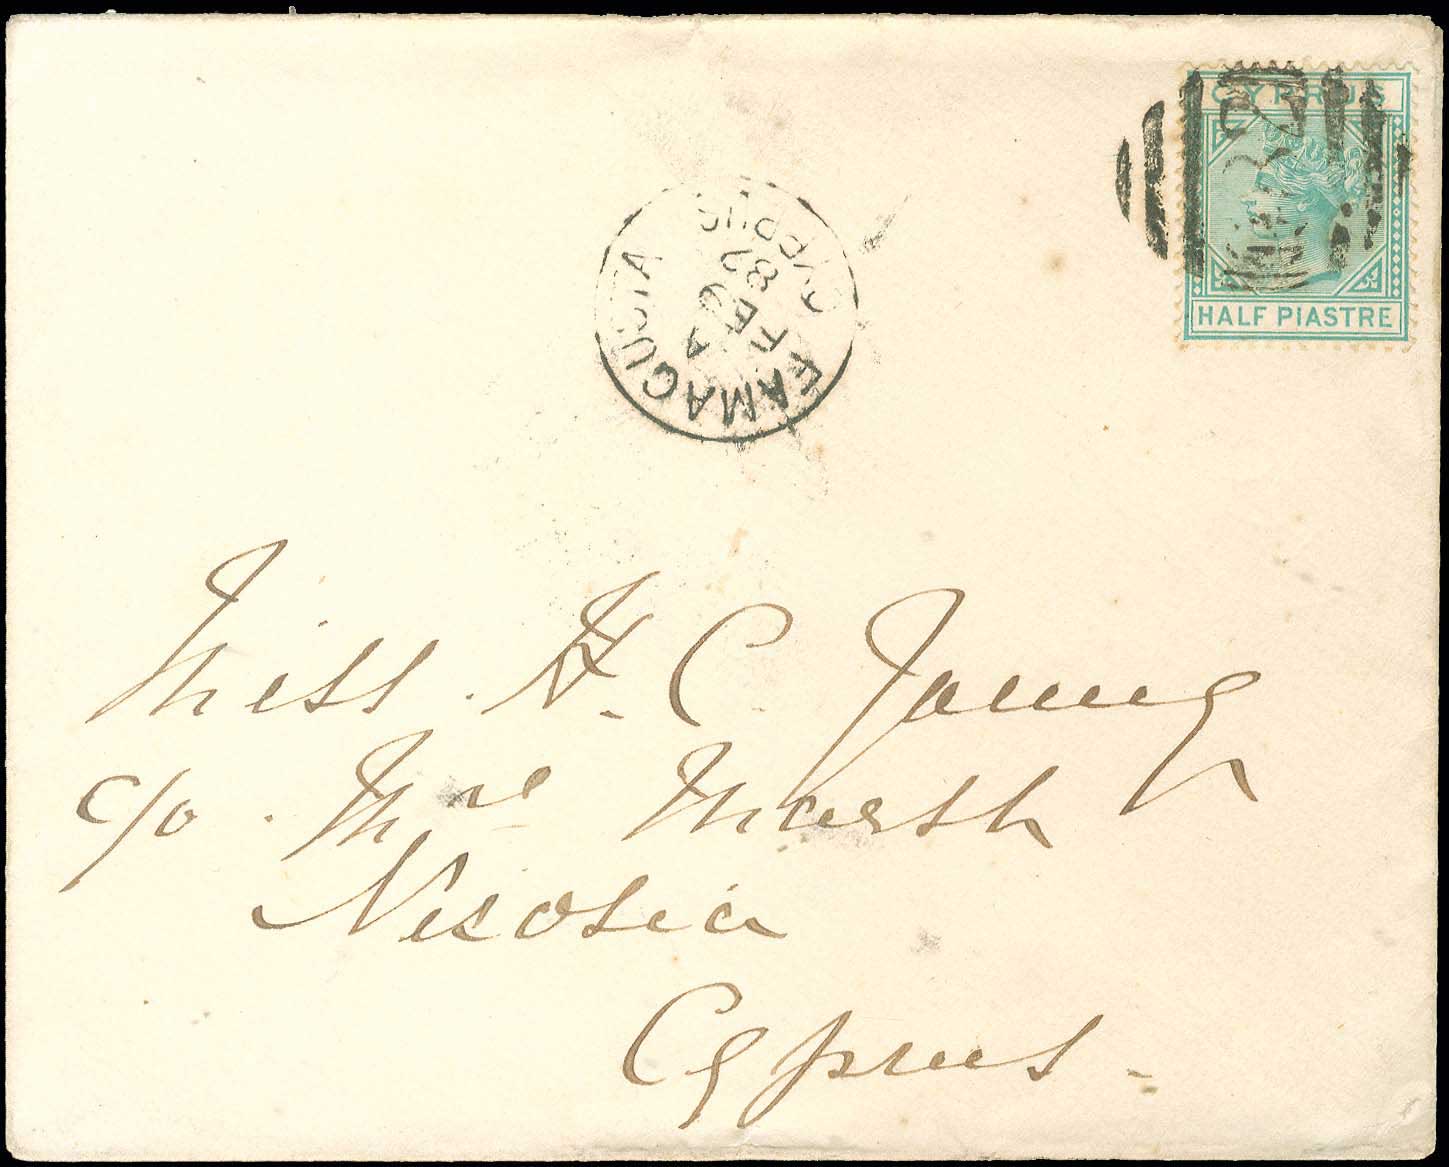 CYPRUS
HALF PIASTRE
FAMAGUSTA
A
FE 9
87
CYPRUS
Miss H. C. Young
c/o Mrs Marsh
Nicosia
Cyprus.